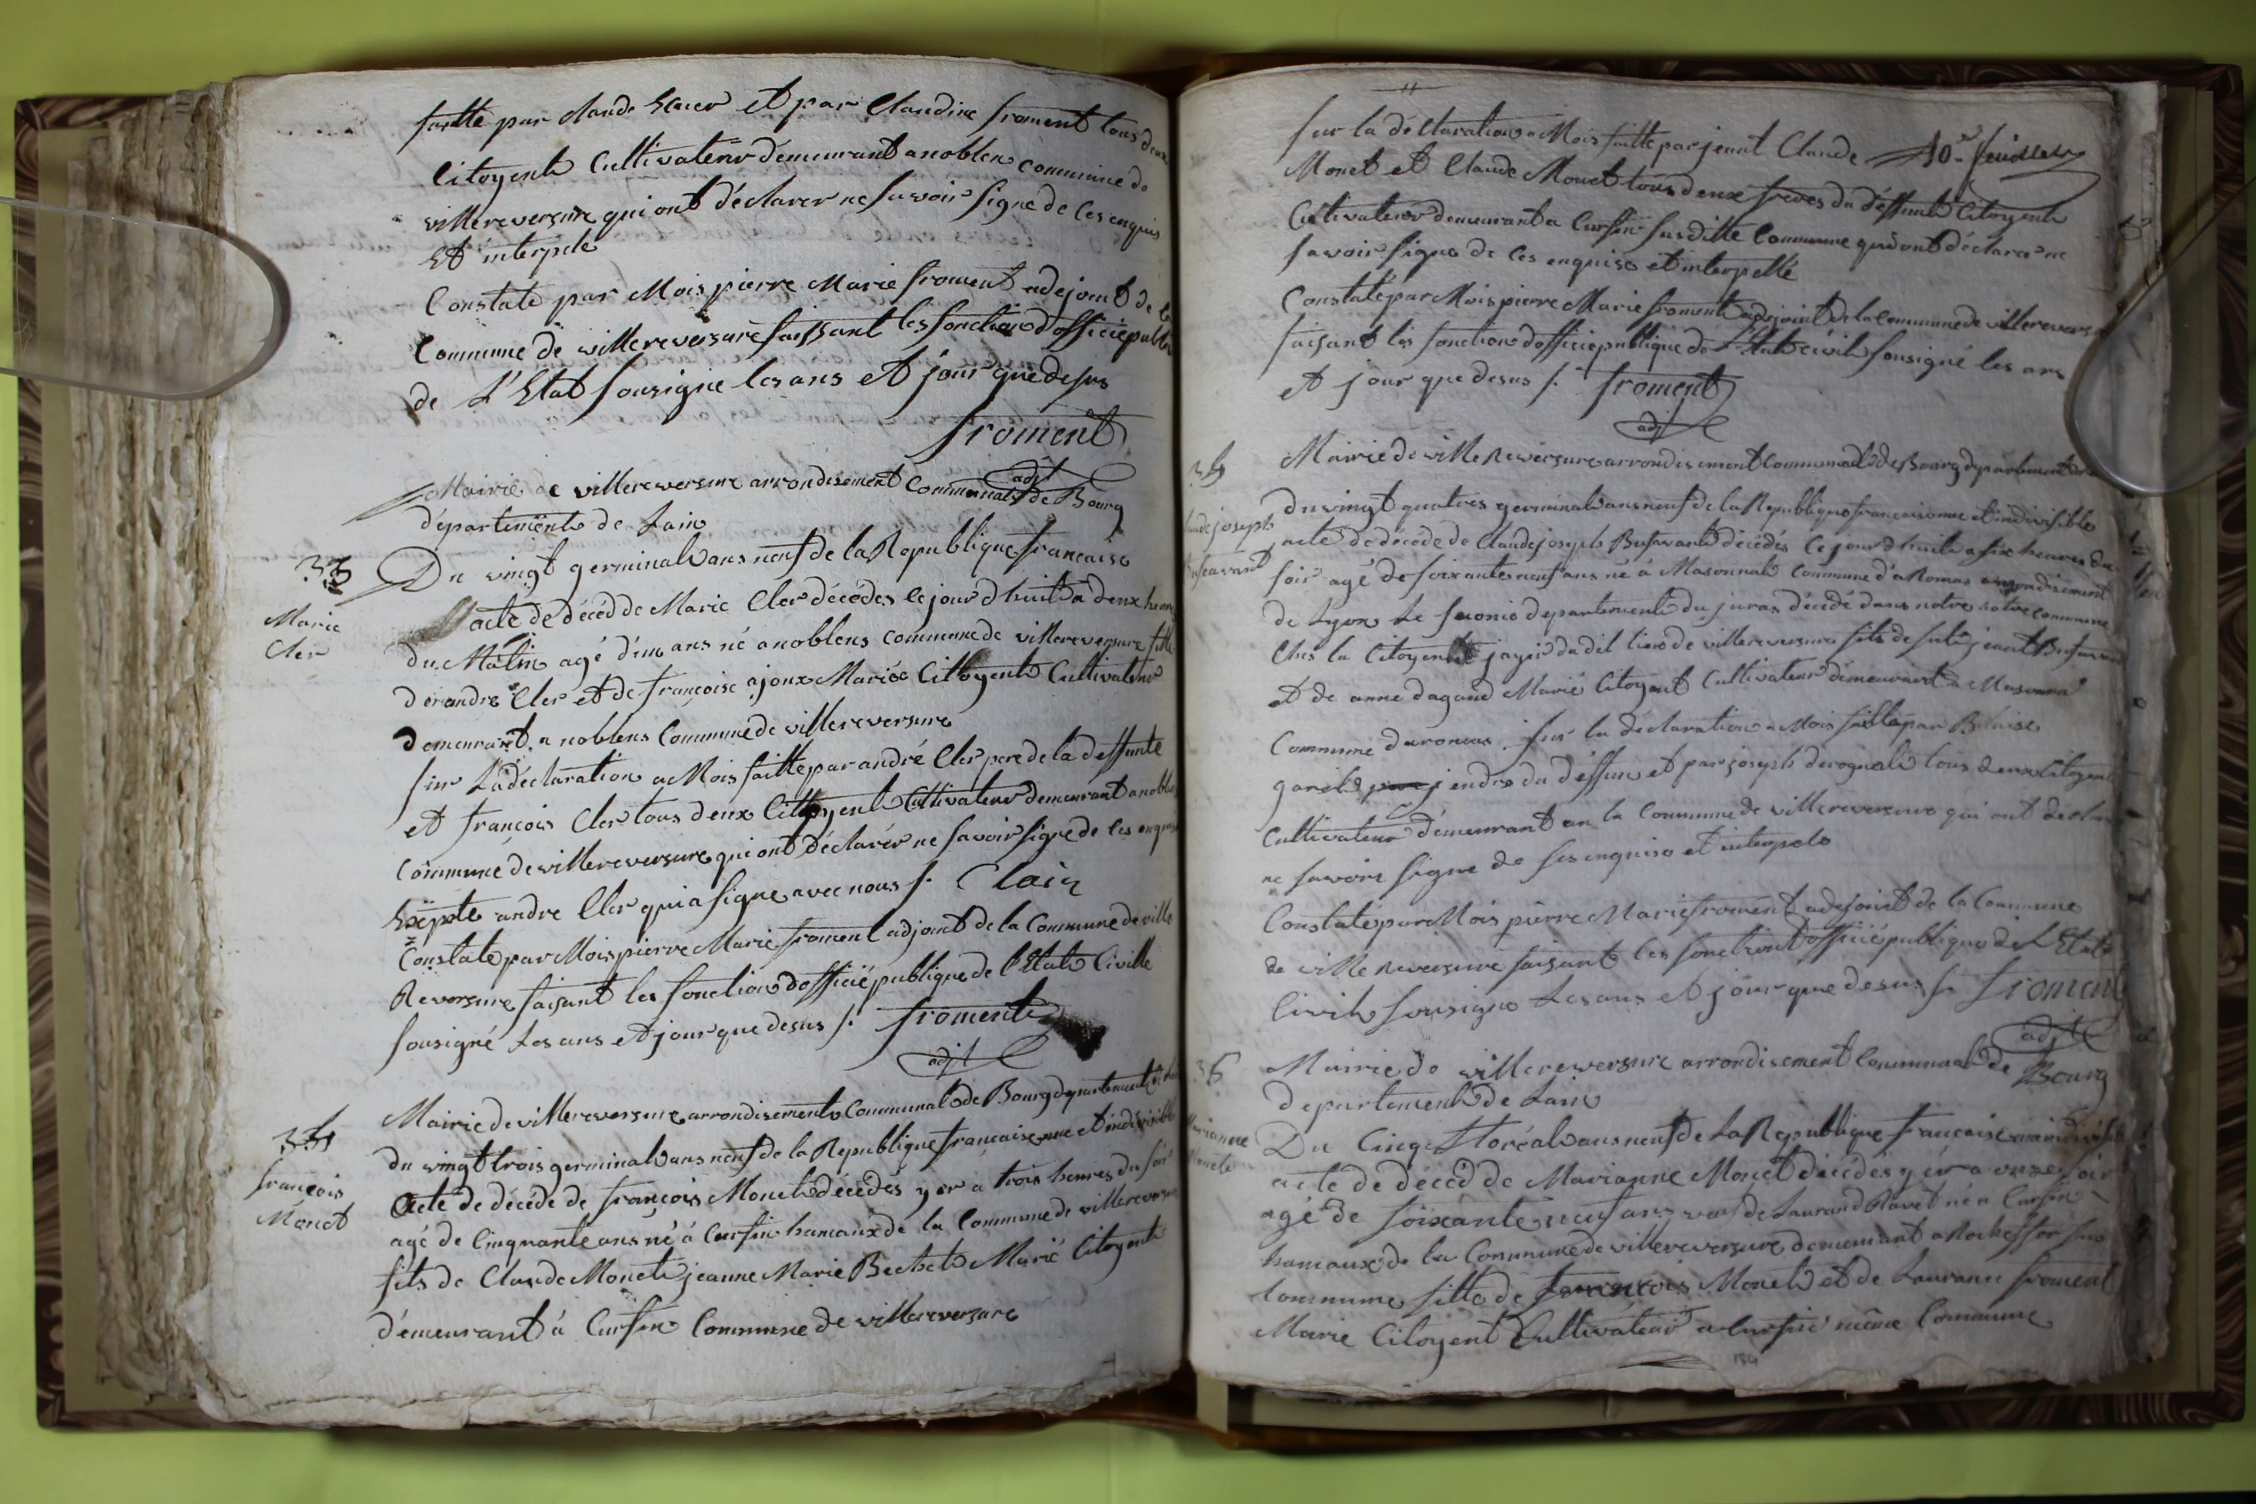 faitte par claude et par Claudine froment tous deux
Citoyent Cultivateur demeurant a noblen commune de
villereversure qui ont déclarer ne savoir signe de ces enquis
Et interpele
Constate par Mois pierre Marie froment adejoint de la
Commune de villereversure faissant les fonction d'officié public
de L'Etat sousigné les ans et jour que desus
froment
adjt
Mairie de villereversure arrondisement Communal de Bourg
département de Lain
33
Du vingt germinal ans neuf de la Republique francaise
Marie
Cler
acte de décéd de Marie Cler décédes le jour d'huit a deux heure
du Matin agé d'un ans né a noblens commune de villereversure fille
de andre Cler et de françoise ajoux Mariée Citoyent Cultivateur
demeurant a noblens Commune de villereversure
sur La déclaration a Mois faitte par andré Cler pere de la deffunte
et francois Cler tous deux Citoyent Cultivateur demeurant a noblens
Commune de villereversure qui ont déclarér ne savoir signe de ces enquis
Exëpte andre Cler qui a signe avec nous /. Clair
Constate par Mois pierre Marie froment adjoint de la Commune de ville
Reversure faisant les fonction d'officié publique de l'Etat Civille
sousigné Les ans et jour que desus /. froment
adjt
34
francois
Monet
Mairie de villereversure arrondisement Communal de Bourg departement
du vingt trois germinal ans neuf de la Republique francaise une et indivisible
Acte de décéde de francois Monet décédés yer a trois heures du soir
agé de Cinquante ans né à Cursin hamaux de la Commune de villereversure
fils de Claude Monet jeanne Marie Bechet Marié Citoyent
démeurant à Cursin Commune de villereversure
10e feuillet
sur la déclaration a Mois faitte par jeant Claude
Monet et Claude Monet tous deux freres du déffunt Citoyent
Cultivateur demeurant a Cursin susditte Commune qui ont déclarer ne
savoir signe de ces enquise et interpellé
Constaté par Mois pierre Marie froment adejoint de la Commune de villereversure
faisant les fonction d'officié publique de L'Etat civil sousigné les ans
et jour que desus /. froment
adjt
Mairie de ville Reversure arrondisement Communal de Bourg departement
du vingt quatres germinal ans neuf de la Republique francaise une et indivisible
Claude joseph
acte de décéde de Claude joseph décédés le jour d'huit a six heures du
soir agé de soixante neuf ans né à Masonnal Commune d'aRomas arrondisement
de Lyon Le departement du juras décédé dans notre commune
Chés la Citoyent du dit lieu de villereversure fils de
et de anne dagand Marié Citoyent Cultivateur démeurant a
Commune d'aromas sur la déclaration a Mois faitte par
jendre du déffun et par joseph tous deux Citoyent
Cultivateur démeurant en la Commune de villereversure qui ont declare
ne savoire signe de ses enquise et interpele
Constaté par Mois pierre Marie froment adejoint de la Commune
de ville Reversure faisant les fonction d'officié publique de L'Etat
Civil sousigne Les ans et jour que desus /. froment
adjt
36
Mairie de villereversure arrondisement Communal de Bourg
departement de Lain
Marianne
Monet
Du Cinq floréal ans neuf de La Republique francaise
acte de décéd de Marianne Monet décédés yér a onze
agé de soixante neuf ans veuf de Laurand Ravet né a Cursin
hamaux de la Commune de villereversure demeurant a Rocheffor sus
Commune fille de francois Monet et de Laurance froment
Marie Citoyent Cultivateur a Cursin même Commune